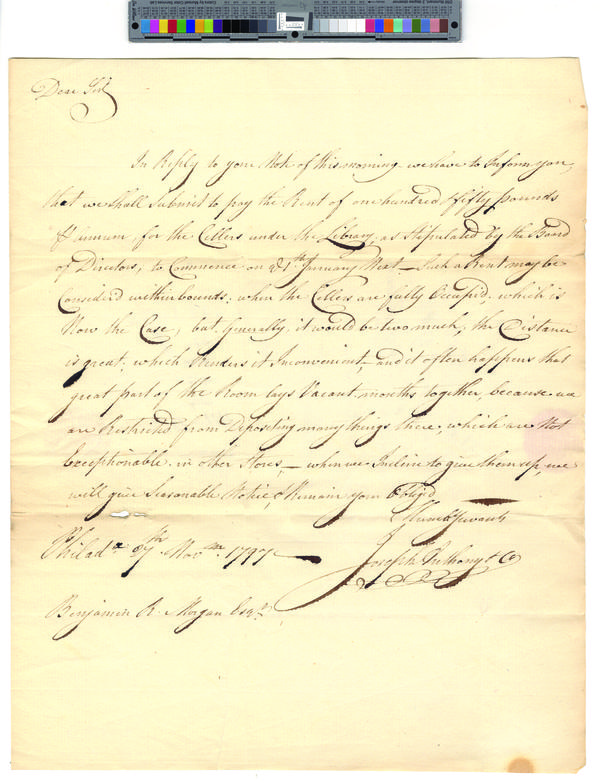 Dear Sir
In Reply to your Note of this morning we have to Inform you,
that we shall submit to pay the Rent of one hundred & fifty pounds
⅌ annum, for the Cellers under the Library, as stipulated by the Board
of Directors, to Commence on ye 1st January Next — Such a Rent may be
Considerd within bounds, when the Cellers are fully Occupid; which is
Now the Case, but Generally it would be two much, the Distance
is great; which Renders it Inconvenient, and it often happens that
great part of the Room lays Vacant months together, because we
are Restricted from Depositing many things there, which are Not
Exceptionable in other Stores, — when we Incline to give them up, we
will give Seasonable Notice, & Remain your Oblig'd
Humb Servants
Philada 27th Novm 1797
Joseph Anthony & Co
Benjamin R. Morgan Esqr